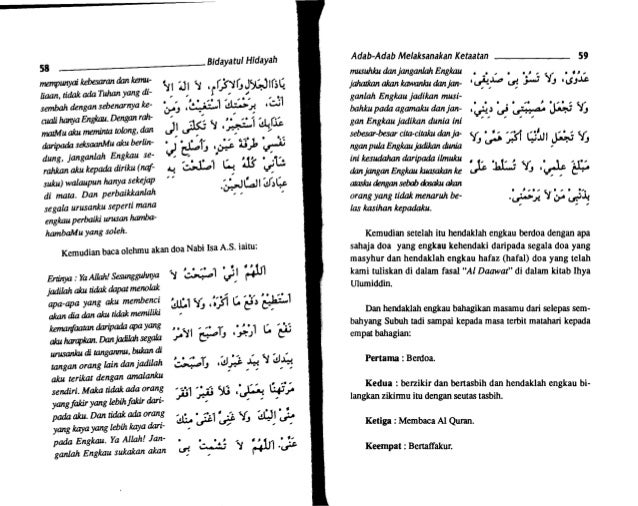 58 Bidayatul Hidayah
mempunyai kebesaran dan kemu-
liaan, tidak ada Tuhan yang di-
sembah dengan sebenarnya ke-
cuali hanya Engkau. Dengan rah-
matMu aku meminta tolong, dan
daripada seksaanMu aku berlin-
dung, janganlah Engkau se-
rahkan aku kepada diriku (naf-
suku) walaupun hanya sekejap
di mata. Dan perbaikkanlah
segala urusanku seperti mana
engkau perbaiki urusan hamba-
hambaMu yang soleh.
يَاذَالْجَلَالِ وَالْإِكْرَامِ، لَا إِلَهَ إِلَّا
أَنْتَ، بِرَحْمَتِكَ أَسْتَغِيْثُ، وَمِنْ
عَذَابِكَ أَسْتَجِيْرُ، لَا تَكِلْنِي إِلَى
نَفْسِي طَرْفَةَ عَيْنٍ، وَأَصْلِحْ لِي
شَأْنِي كُلَّهُ بِمَا أَصْلَحْتَ بِهِ
عِبَادَكَ الصَّالِحِيْنَ.
Kemudian baca olehmu akan doa Nabi Isa A.S. iaitu:
Ertinya : Ya Allah! Sesungguhnya
jadilah aku tidak dapat menolak
apa-apa yang aku membenci
akan dia dan aku tidak memiliki
kemanfaatan daripada apa yang
aku harapkan. Dan jadilah segala
urusanku di tanganmu, bukan di
tangan orang lain dan jadilah
aku terikat dengan amalanku
sendiri. Maka tidak ada orang
yang fakir yang lebih fakir dari-
pada aku. Dan tidak ada orang
yang kaya yang lebih kaya dari-
pada Engkau. Ya Allah! Jan-
ganlah Engkau sukakan akan
اَللَّهُمَّ إِنِّي أَصْبَحْتُ لَا
أَسْتَطِيْعُ دَفْعَ مَا أَكْرَهُ، وَلَا أَمْلِكُ
نَفْعَ مَا أَرْجُو، وَأَصْبَحَ الْأَمْرُ
بِيَدِكَ لَا بِيَدِ غَيْرِكَ، وَأَصْبَحْتُ
مُرْتَهِنًا بِعَمَلِي، فَلَا فَقِيْرَ أَفْقَرُ
مِنِّي إِلَيْكَ وَلَا غَنِيَّ أَغْنَى مِنْكَ
عَنِّي. اَللَّهُمَّ لَا تُشْمِتْ بِي
Adab-Adab Melaksanakan Ketaatan 59
musuhku dan janganlah Engkau
jahatkan akan kawanku dan jan-
ganlah Engkau jadikan musi-
bahku pada agamaku dan jan-
gan Engkau jadikan dunia ini
sebesar-besar cita-citaku dan ja-
ngan pula Engkau jadikan dunia
ini kesudahan daripada ilmuku
dan jangan Engkau kuasakan ke
atasku dengan sebab dosaku akan
orang yang tidak menaruh be-
las kasihan kepadaku.
عَدُوِّي، وَلَا تَسُؤْ بِي صَدِيْقِي،
وَلَا تَجْعَلْ مُصِيْبَتِي فِي دِيْنِي،
وَلَا تَجْعَلِ الدُّنْيَا أَكْبَرَ هَمِّي وَلَا
مَبْلَغَ عِلْمِي، وَلَا تُسَلِّطْ عَلَيَّ
بِذَنْبِي مَنْ لَا يَرْحَمُنِي.
Kemudian setelah itu hendaklah engkau berdoa dengan apa
sahaja doa yang engkau kehendaki daripada segala doa yang
masyhur dan hendaklah engkau hafaz (hafal) doa yang telah
kami tuliskan di dalam fasal "Al Daawat" di dalam kitab Ihya
Ulumiddin.
Dan hendaklah engkau bahagikan masamu dari selepas sem-
bahyang Subuh tadi sampai kepada masa terbit matahari kepada
empat bahagian:
Pertama : Berdoa.
Kedua : berzikir dan bertasbih dan hendaklah engkau bi-
langkan zikirmu itu dengan seutas tasbih.
Ketiga : Membaca Al Quran.
Keempat : Bertaffakur.